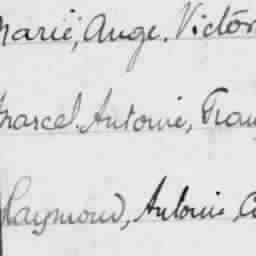 Marie, Ange. Victor
Marcel. Antonie, Fran
Raymond, Antonie, C